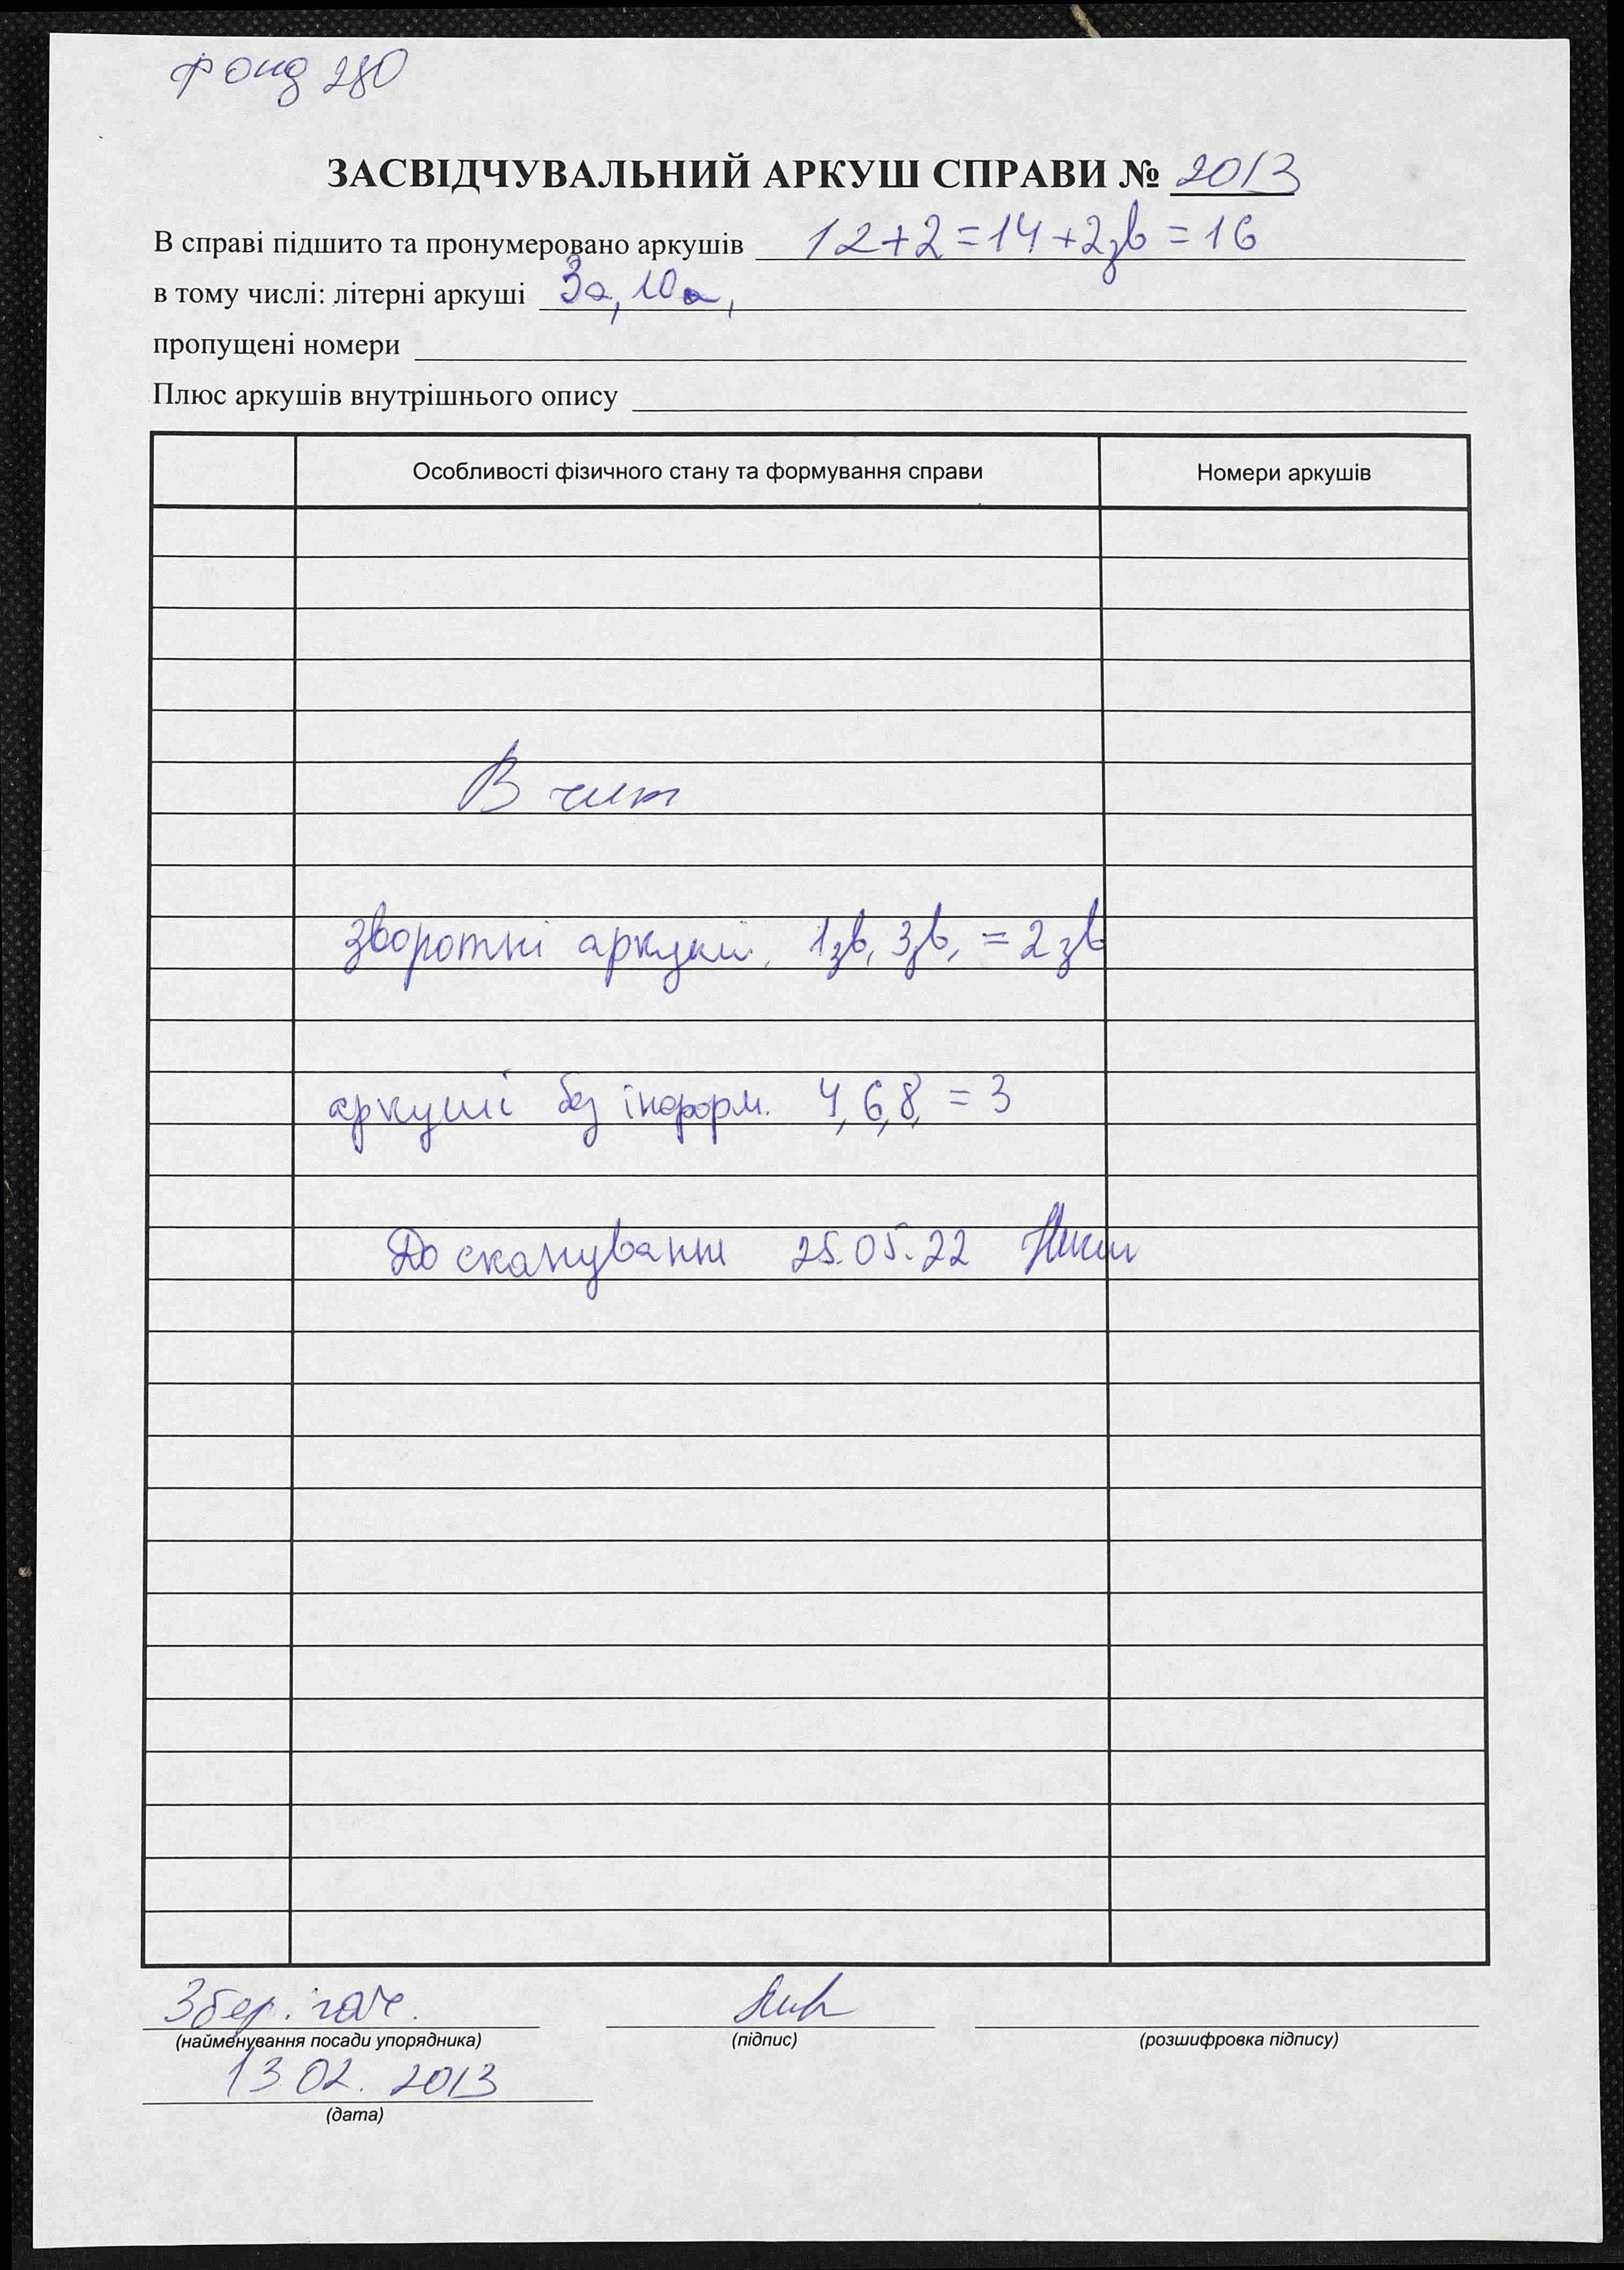 Фонд 280
ЗАСВІДЧУВАЛЬНИЙ АРКУШ СПРАВИ № 2013
В справі підшито та пронумеровано аркушів 12+2=14+2зв=16
в тому числі: літерні аркуші 3а, 10а,
пропущені номери
Плюс аркушів внутрішнього опису
Особливості фізичного стану та формування справи Номери аркушів
В чит
зворотні аркуші, 1зв, 3зв, = 2зв
аркуші без інформ. 4, 6, 8, = 3
До сканування 25.05.22
Збер. гач.
(найменування посади упорядника) (підпис) (розшифровка підпису)
13.02.2013
(дата)